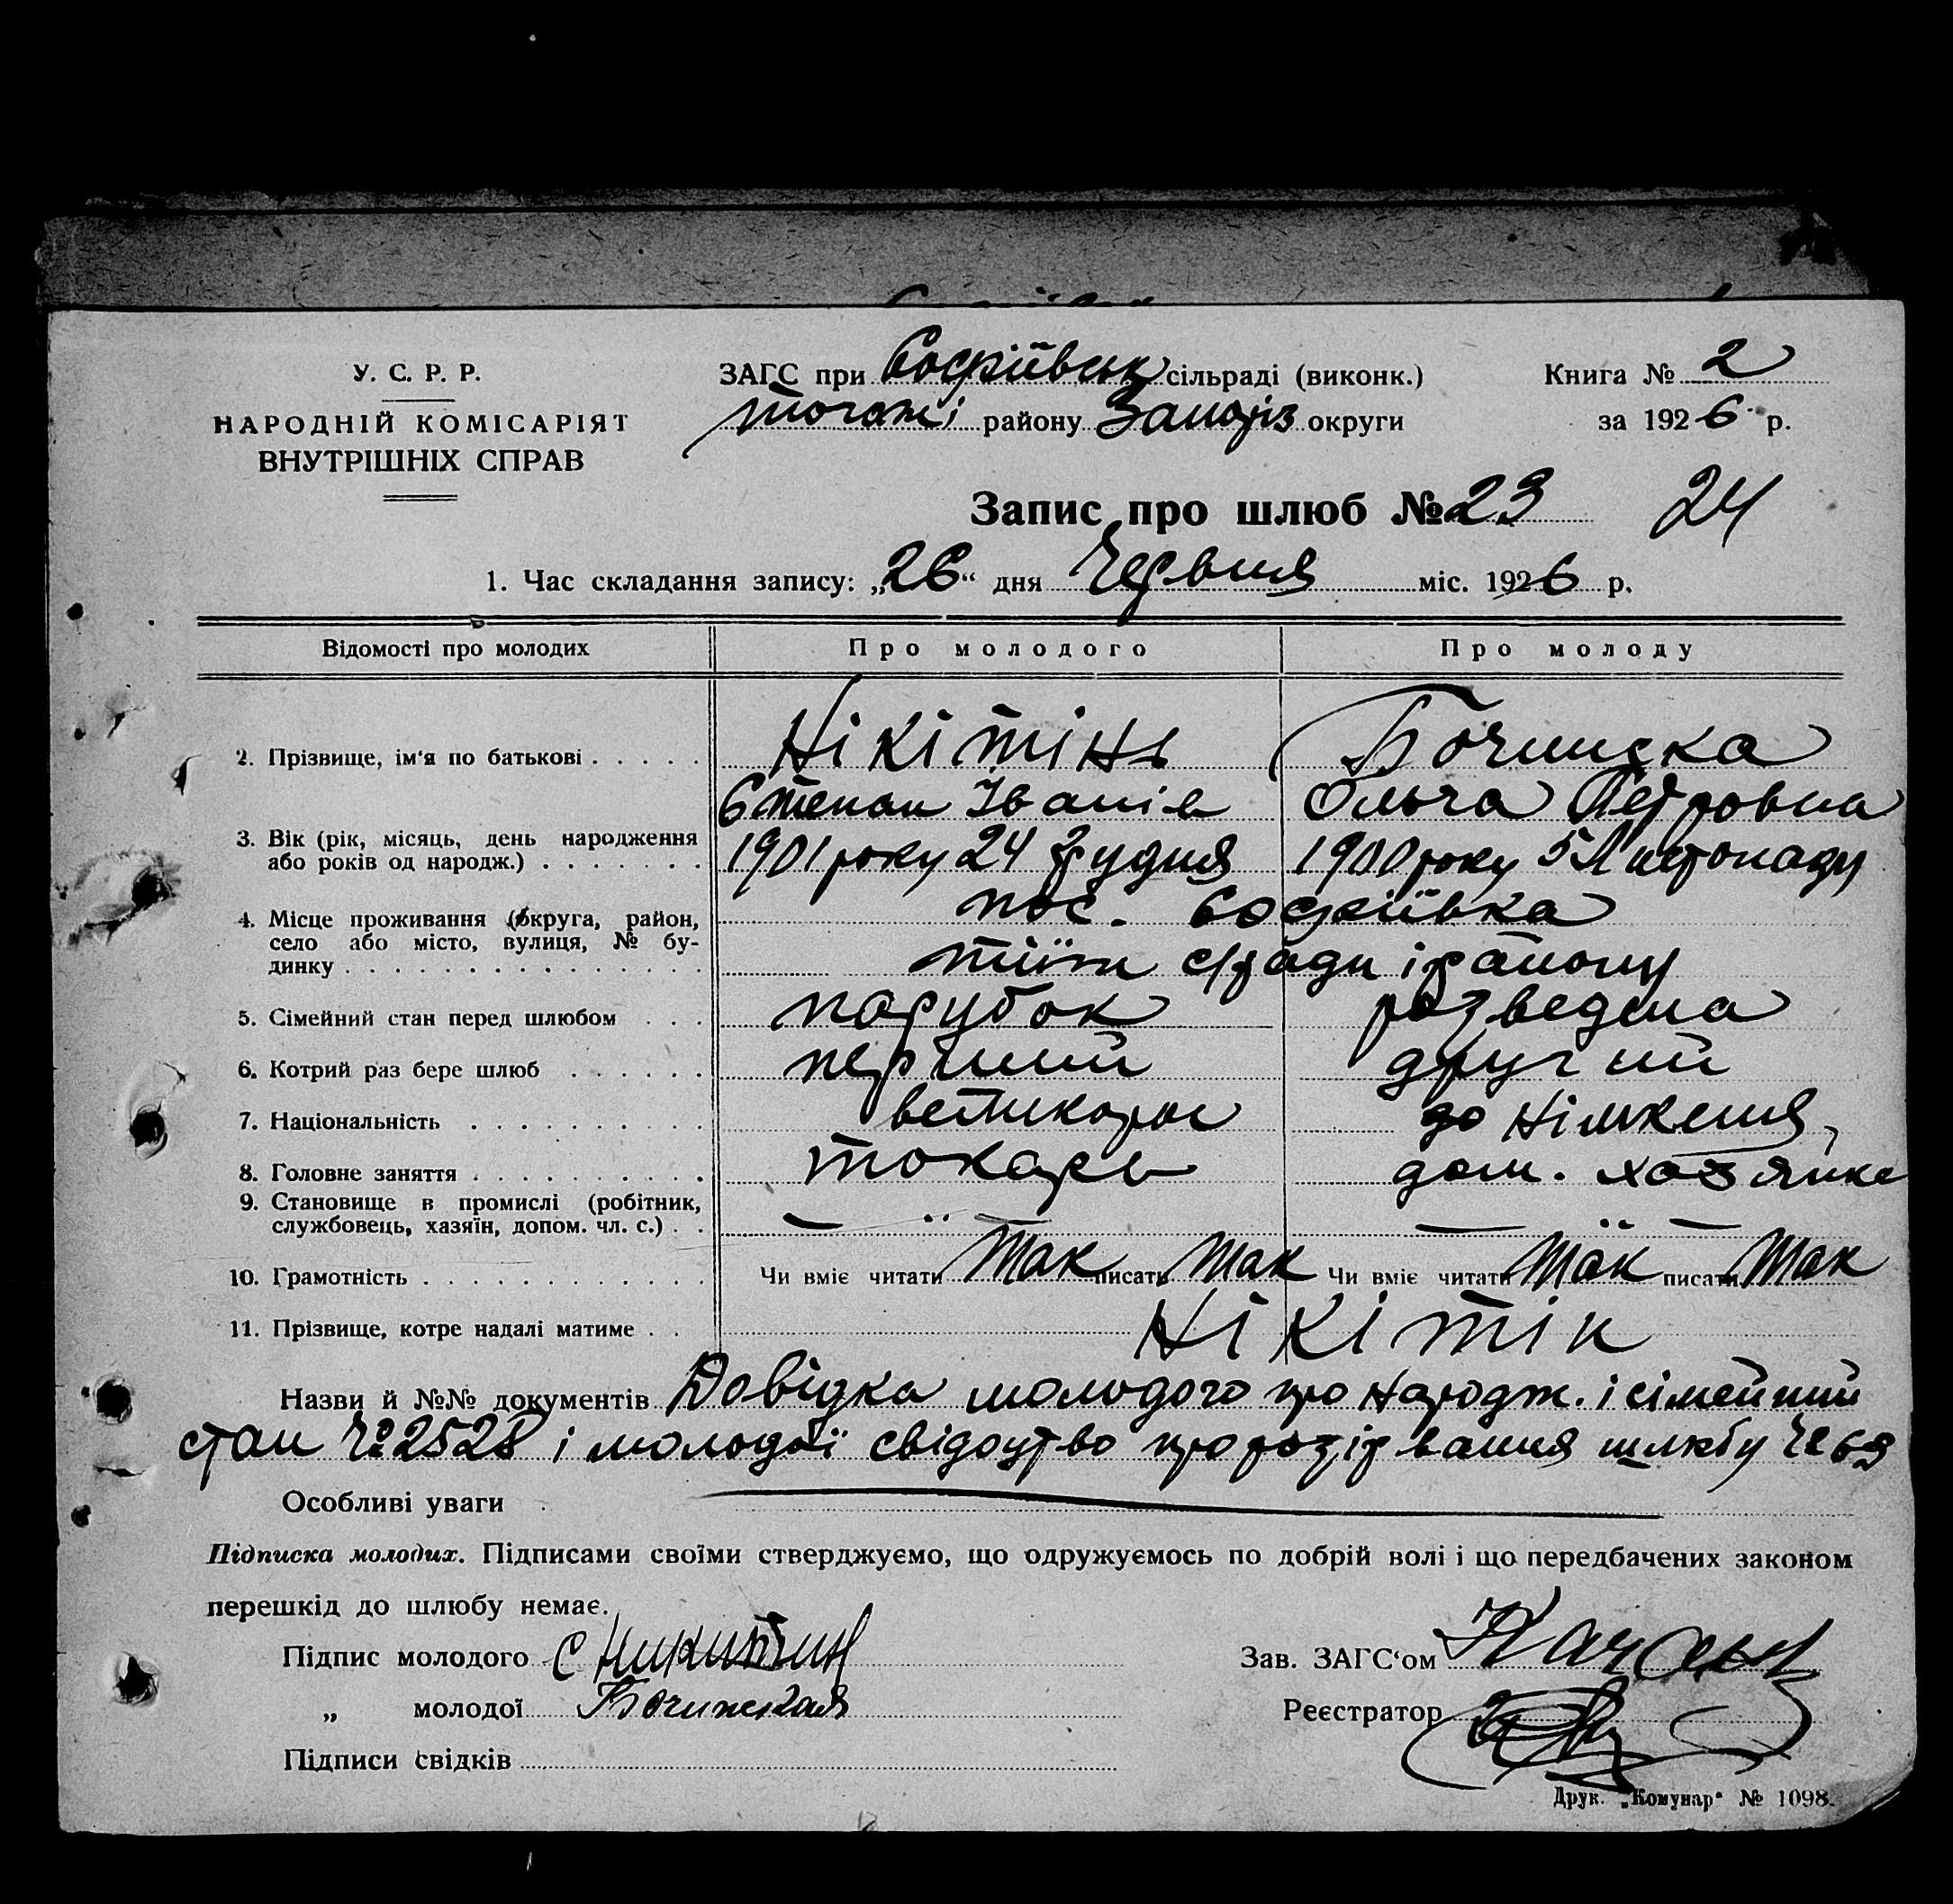 У. С. Р. Р.
НАРОДНІЙ КОМІСАРІЯТ
ВНУТРІШНІХ СПРАВ
ЗАГС при Софіївськ сільраді (виконк.)
району Запоріз округи
Книга № 2
за 1926 р.
Запис про шлюб № 23 24
1. Час складання запису: „26“ дня Червня міс. 1926 р.
Відомості про молодих Про молодого Про молоду
2. Прізвище, ім'я по батькові . . . . . Нікітінь
Степан Іванів Ольга Петровна
3. Вік (рік, місяць, день народження
або років од народж.) . . . . . . . 1901 року 24 Грудня 1900 року 5 Листопаду
4. Місце проживання (округа, район,
село або місто, вулиця, № бу-
динку . . . . . . . . . . . . . . . . пос. Софіївка
с/ради і району
5. Сімейний стан перед шлюбом . . . парубок розведена
6. Котрий раз бере шлюб . . . . . . перший другий
7. Національність . . . . . . . . . . великорос німкеня
8. Головне заняття . . . . . . . . . . токарь дом. хозяйка
9. Становище в промислі (робітник,
службовець, хазяїн, допом. чл. с.) . .
10. Грамотність . . . . . . . . . . . . Чи вміє читати Так писати Так Чи вміє читати Так писати Так
11. Прізвище, котре надалі матиме . . Нікітін
Назви й №№ документів Довідка молодого про народж. і сімейний
стан № 2528 і молодої свідоцтво про розірвання шлюбу № 69
Особливі уваги
Підписка молодих. Підписами своїми стверджуємо, що одружуємось по добрій волі і що передбачених законом
перешкід до шлюбу немає.
Підпис молодого С Никитин
„ молодої Бочинская
Підписи свідків
Зав. ЗАГС'ом
Реєстратор
Друк. „Комунар“ № 1098.